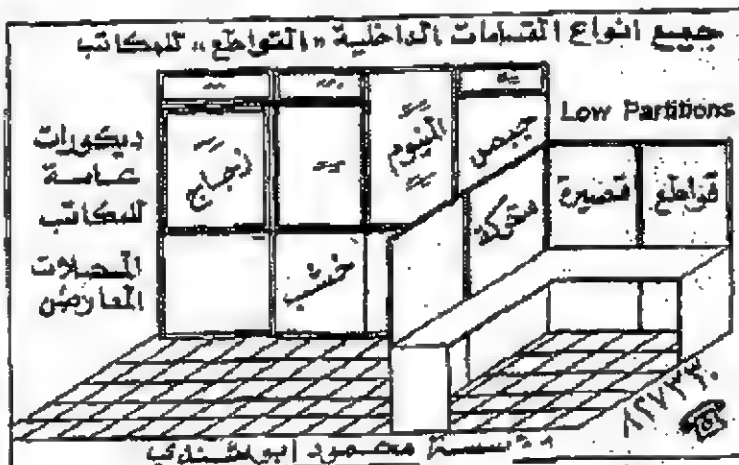 جميع انواع القسامات الداخلية «القواطع» للمكاتب
Low Partitions
ديكورات
عامة
للمكاتب
المحلات
المعارض
زجاج
المنيوم
جبص
خشب
متحركة
قواطع قصيرة
مؤسسة محمود ابو